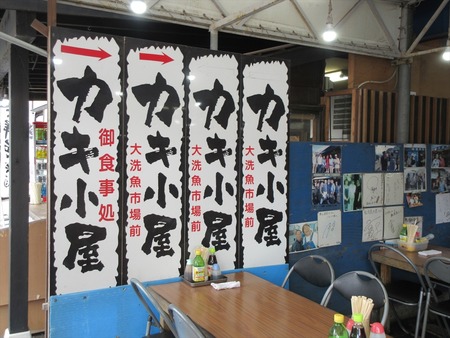 カキ小屋
御食事処
カキ小屋
大洗魚市場前
カキ小屋
大洗魚市場前
カキ小屋
大洗魚市場前